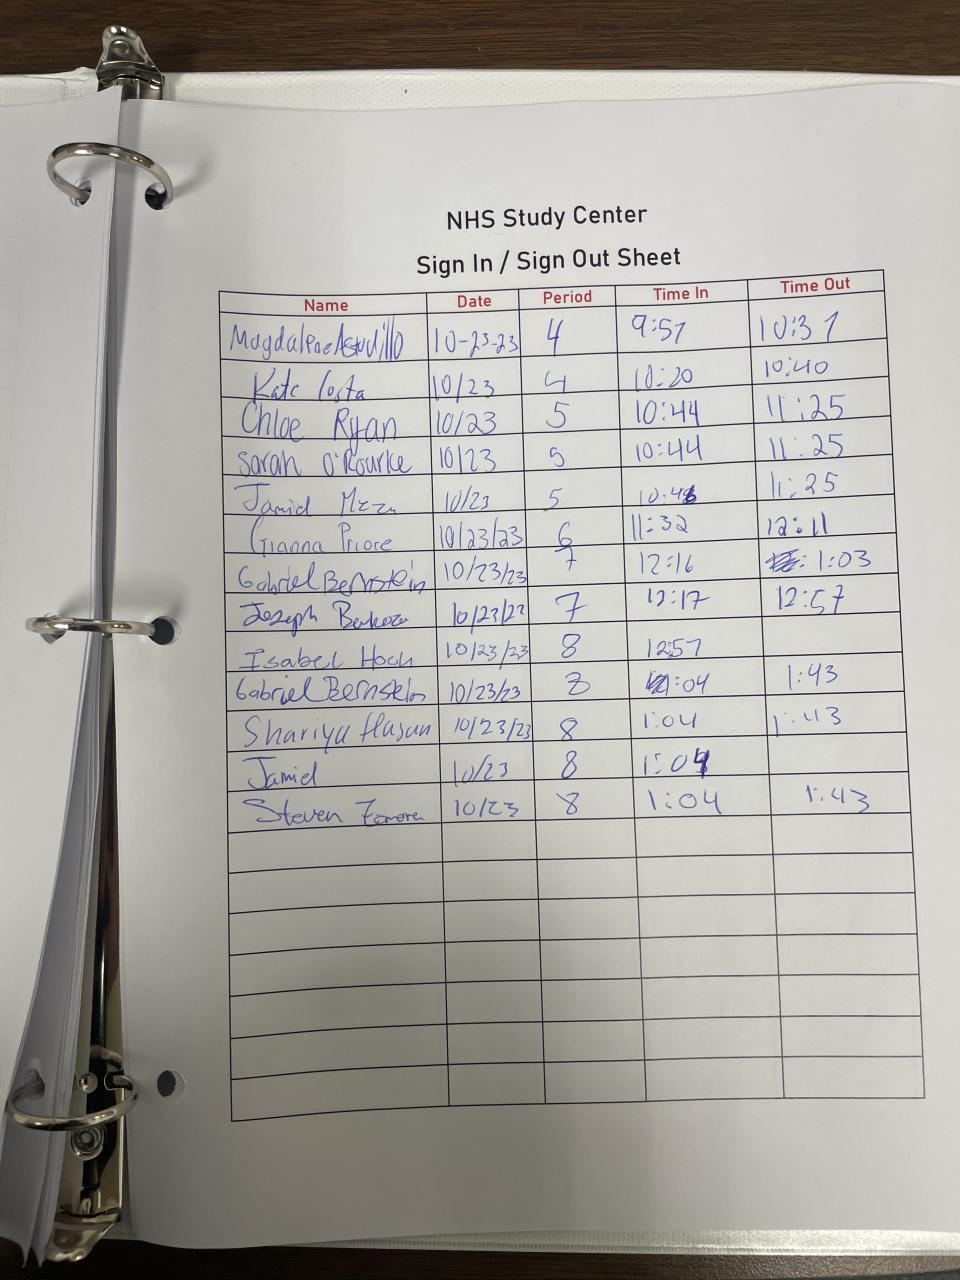 NHS Study Center
Sign In / Sign Out Sheet
Name Date Period Time In Time Out
Magdalene Astudillo 10-23-23 4 9:57 10:37
Kate Costa 10/23 4 10:20 10:40
Chloe Ryan 10/23 5 10:44 11:25
Sarah O'Rourke 10/23 5 10:44 11:25
Jamid 10/23 5 11:25
Gianna Priore 10/23/23 6 11:32 12:11
Gabriel Bernstein 10/23/23 7 12:16 1:03
Joseph 10/23/23 7 12:17 12:57
Isabel Hoch 10/23/23 8 12:57
Gabriel Bernstein 10/23/23 8 1:04 1:43
Shariya Hasan 10/23/23 8 1:04 1:43
Jamid 10/23 8 1:04
Steven 10/23 8 1:04 1:43